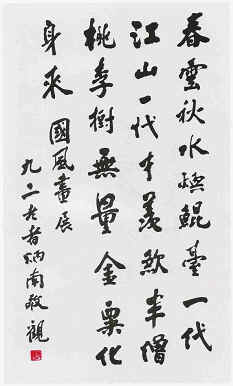 春雲秋水嶼鯤臺一代
江山一代才羨煞半僧
桃李樹無量金粟化
身來
國風畫展
九二老者炳南敬觀